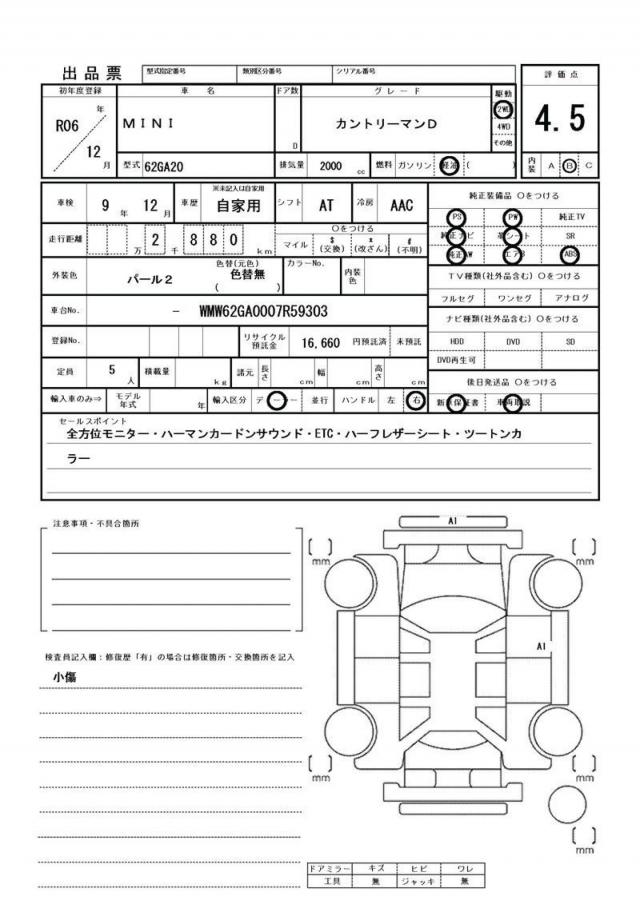 出品票 型式指定番号 類別区分番号 シリアル番号 評価点
初年度登録 車名 ドア数 グレード 駆動 4.5
R06 年 12 月 MINI D カントリーマンD 2WD 4WD その他
型式 62GA20 排気量 2000 cc 燃料 ガソリン 軽油 ( ) 内装 A B C
車検 9 年 12 月 車歴 ※未記入は自家用 自家用 シフト AT 冷房 AAC 純正装備品 ○をつける
PS PW 純正TV
走行距離 万 2 千 8 8 0 km ○をつける マイル $ (交換) * (改ざん) # (不明)
純正ナビ 革シート SR
純正AW エアB ABS
外装色 パール2 色替(元色) 色替無 ( ) カラーNo. 内装色
TV種類(社外品含む) ○をつける
フルセグ ワンセグ アナログ
車台No. － WMW62GA0007R59303
ナビ種類(社外品含む) ○をつける
登録No. リサイクル預託金 16,660 円預託済 未預託 HDD DVD SD
DVD再生可
定員 5 人 積載量 kg 諸元 長さ cm 幅 cm 高さ cm 後日発送品 ○をつける
輸入車のみ⇒ モデル年式 年 輸入区分 ディーラー 並行 ハンドル 左 右 新車保証書 車両取説
セールスポイント
全方位モニター・ハーマンカードンサウンド・ETC・ハーフレザーシート・ツートンカ
ラー
注意事項・不具合箇所
A1
mm
mm
A1
検査員記入欄：修復歴「有」の場合は修復箇所・交換箇所を記入
小傷
mm
mm
mm
ドアミラー キズ ヒビ ワレ
工具 無 ジャッキ 無